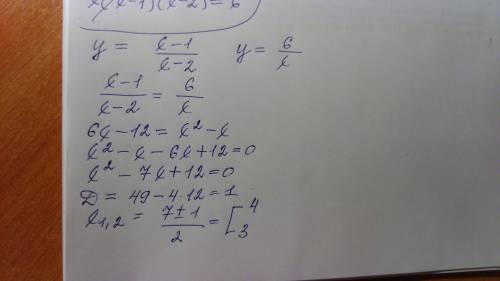 x(x-1)(x-2)=6
y = x-1/x-2   y = 6/x
x-1/x-2 = 6/x
6x-12=x²-x
x²-x-6x+12=0
x²-7x+12=0
D = 49-4·12=1
x1,2 = 7±1/2 = [4 3